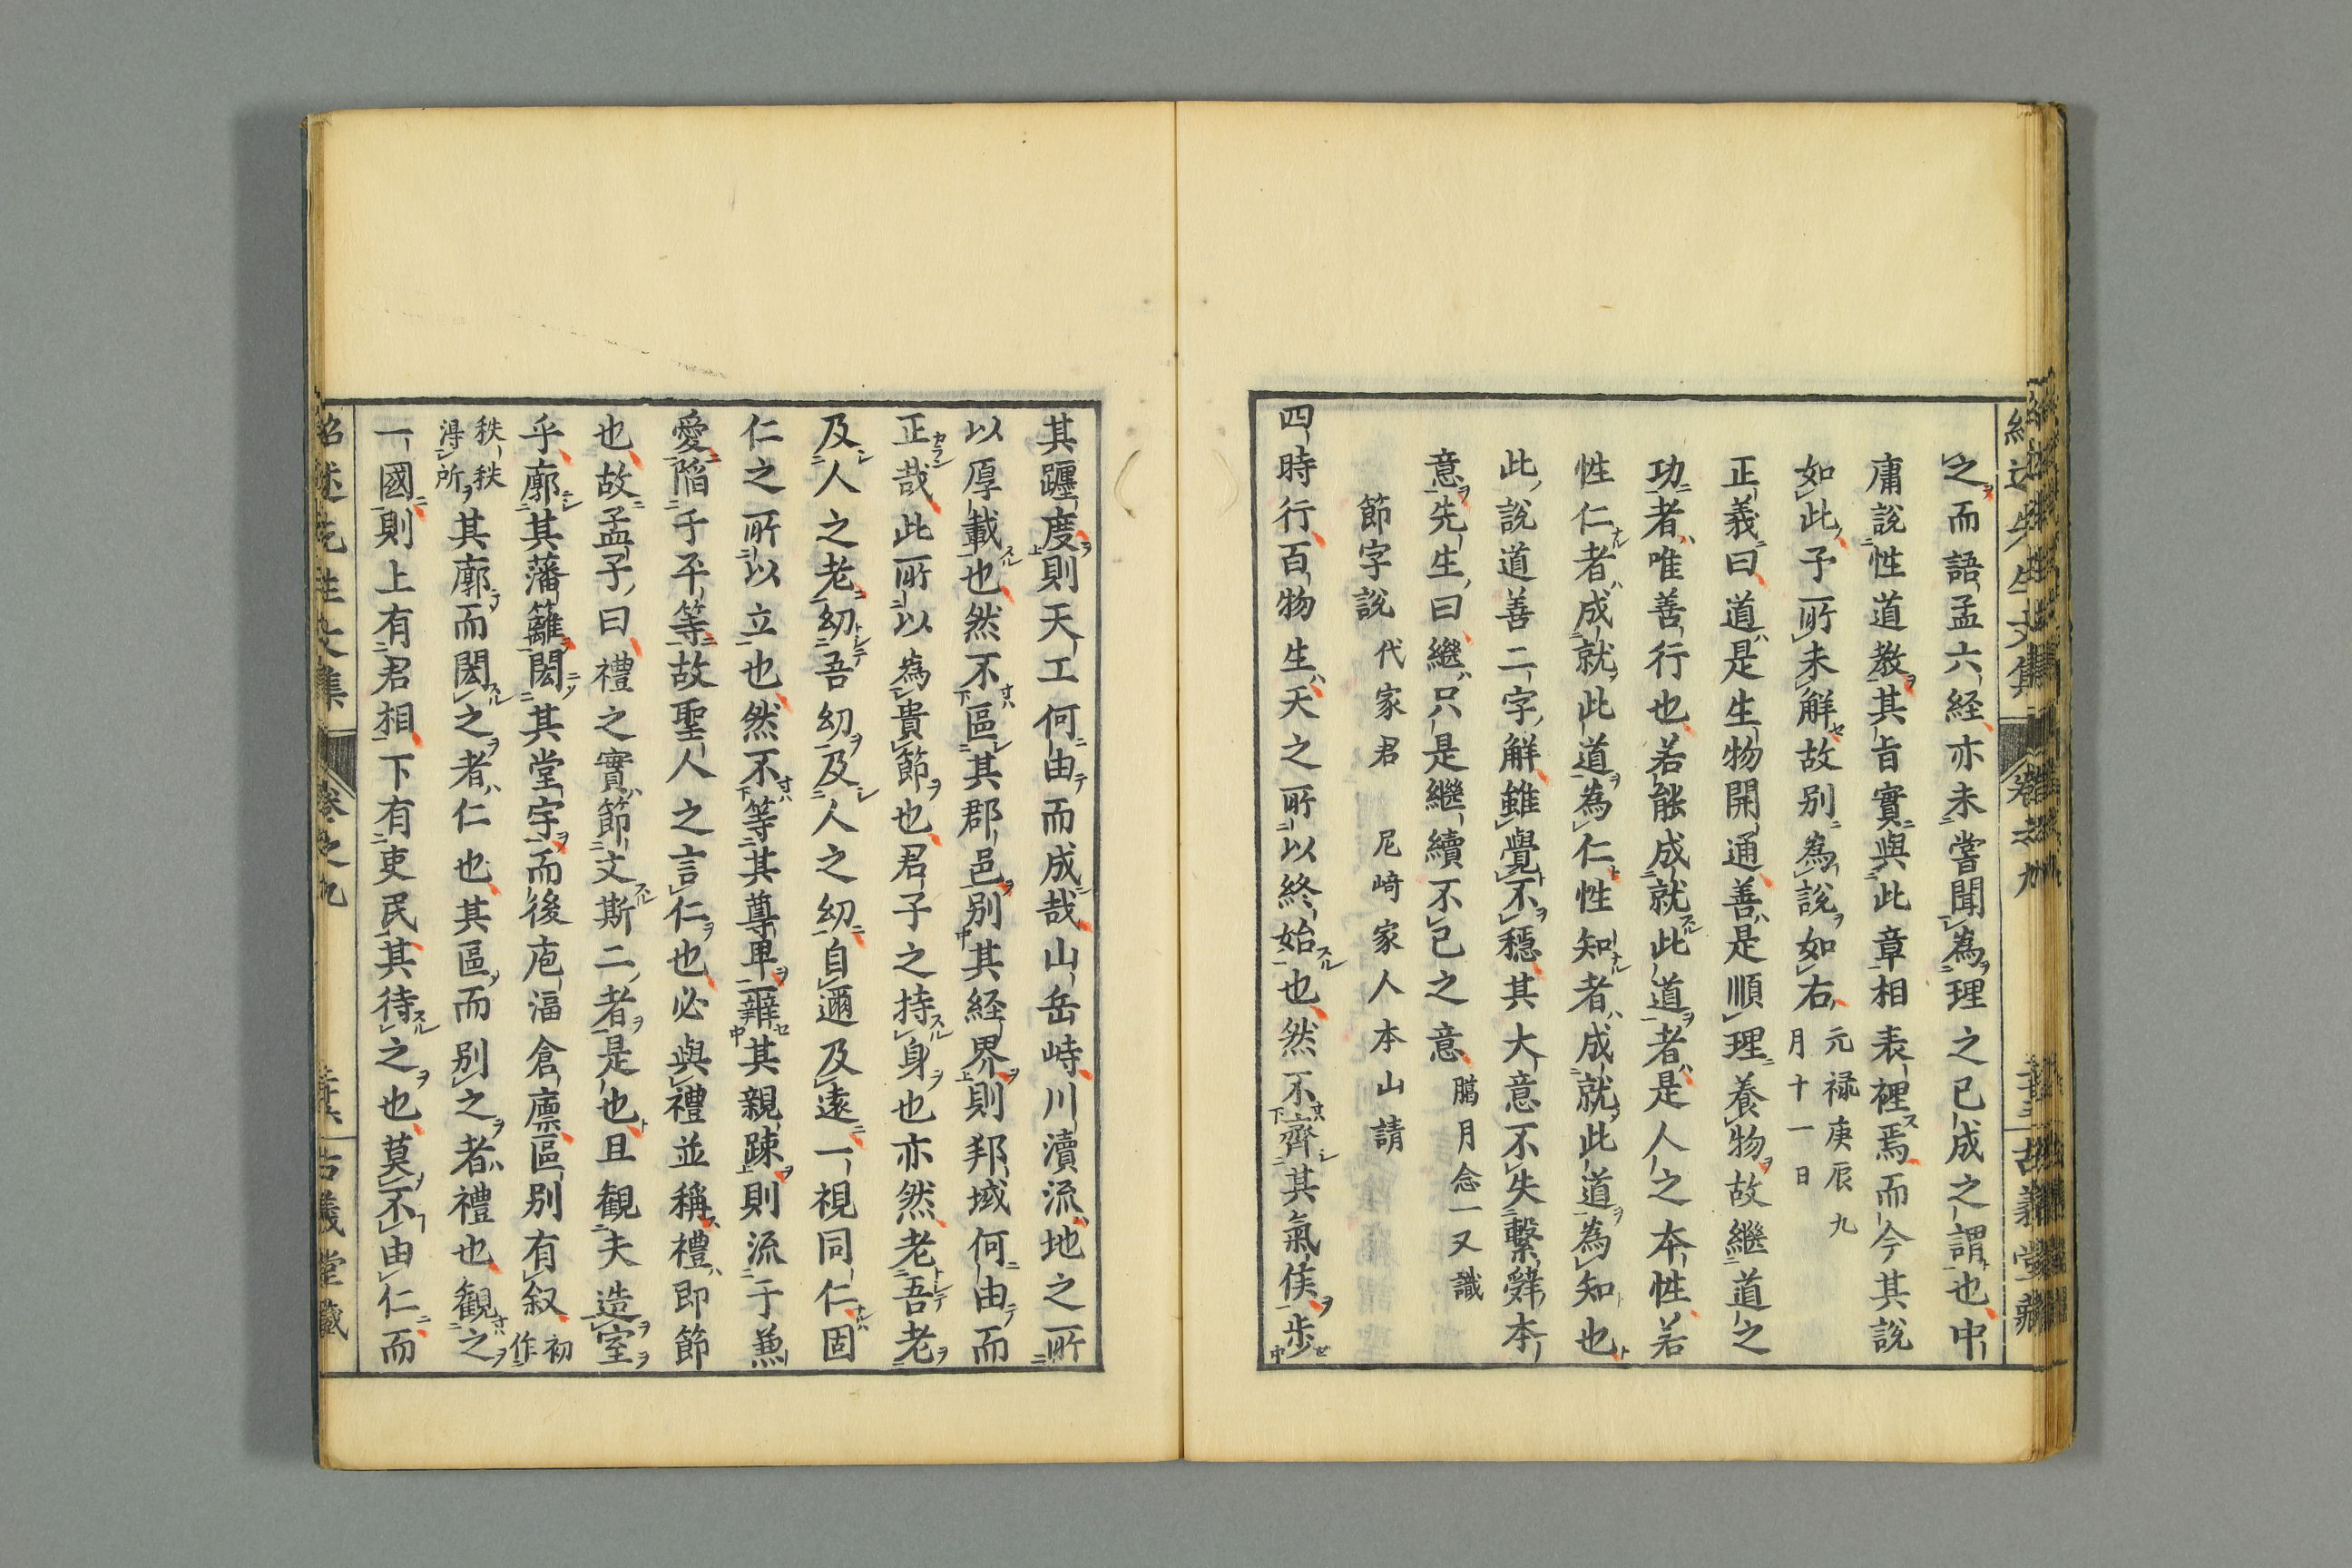 之而語孟六経亦未嘗聞為理之已成之謂也中
庸說性道教其旨實與此章相表裡焉而今其說
如此予所未解故別為說如右元禄庚辰九
月十一日
正義曰道是生物開通善是順理養物故継道之
功者唯善行也若能成就此道者是人之本性若
性仁者成就此道為仁性知者成就此道為知也
此說道善二字解雖覺不穩其大意不失繫辤本
意先生曰継只是継續不已之意臈月念一又識
節字説 代家君 尼﨑家人本山請
四時行百物生天之所以終始也然不齊其氣侯步
其躔度則天工何由而成哉山岳峙川瀆流地之所
以厚載也然不區其郡邑別其経界則邦域何由而
正哉此所以為貴節也君子之持身也亦然老吾老
及人之老幼吾幼及人之幼自邇及遠一視同仁固
仁之所以立也然不等其尊卑雜其親踈則流于兼
愛陷于平等故聖人之言仁也必與禮並稱禮即節
也故孟子曰禮之實節文斯二者是也且観夫造室
乎廓其藩籬閎其堂宇而後庖湢倉廩區別有叙初作
秩秩得所其廓而閎之者仁也其區而別之者禮也観之
一國則上有君相下有吏民其待之也莫不由仁而
紹述先生文集 卷之九 古義堂藏